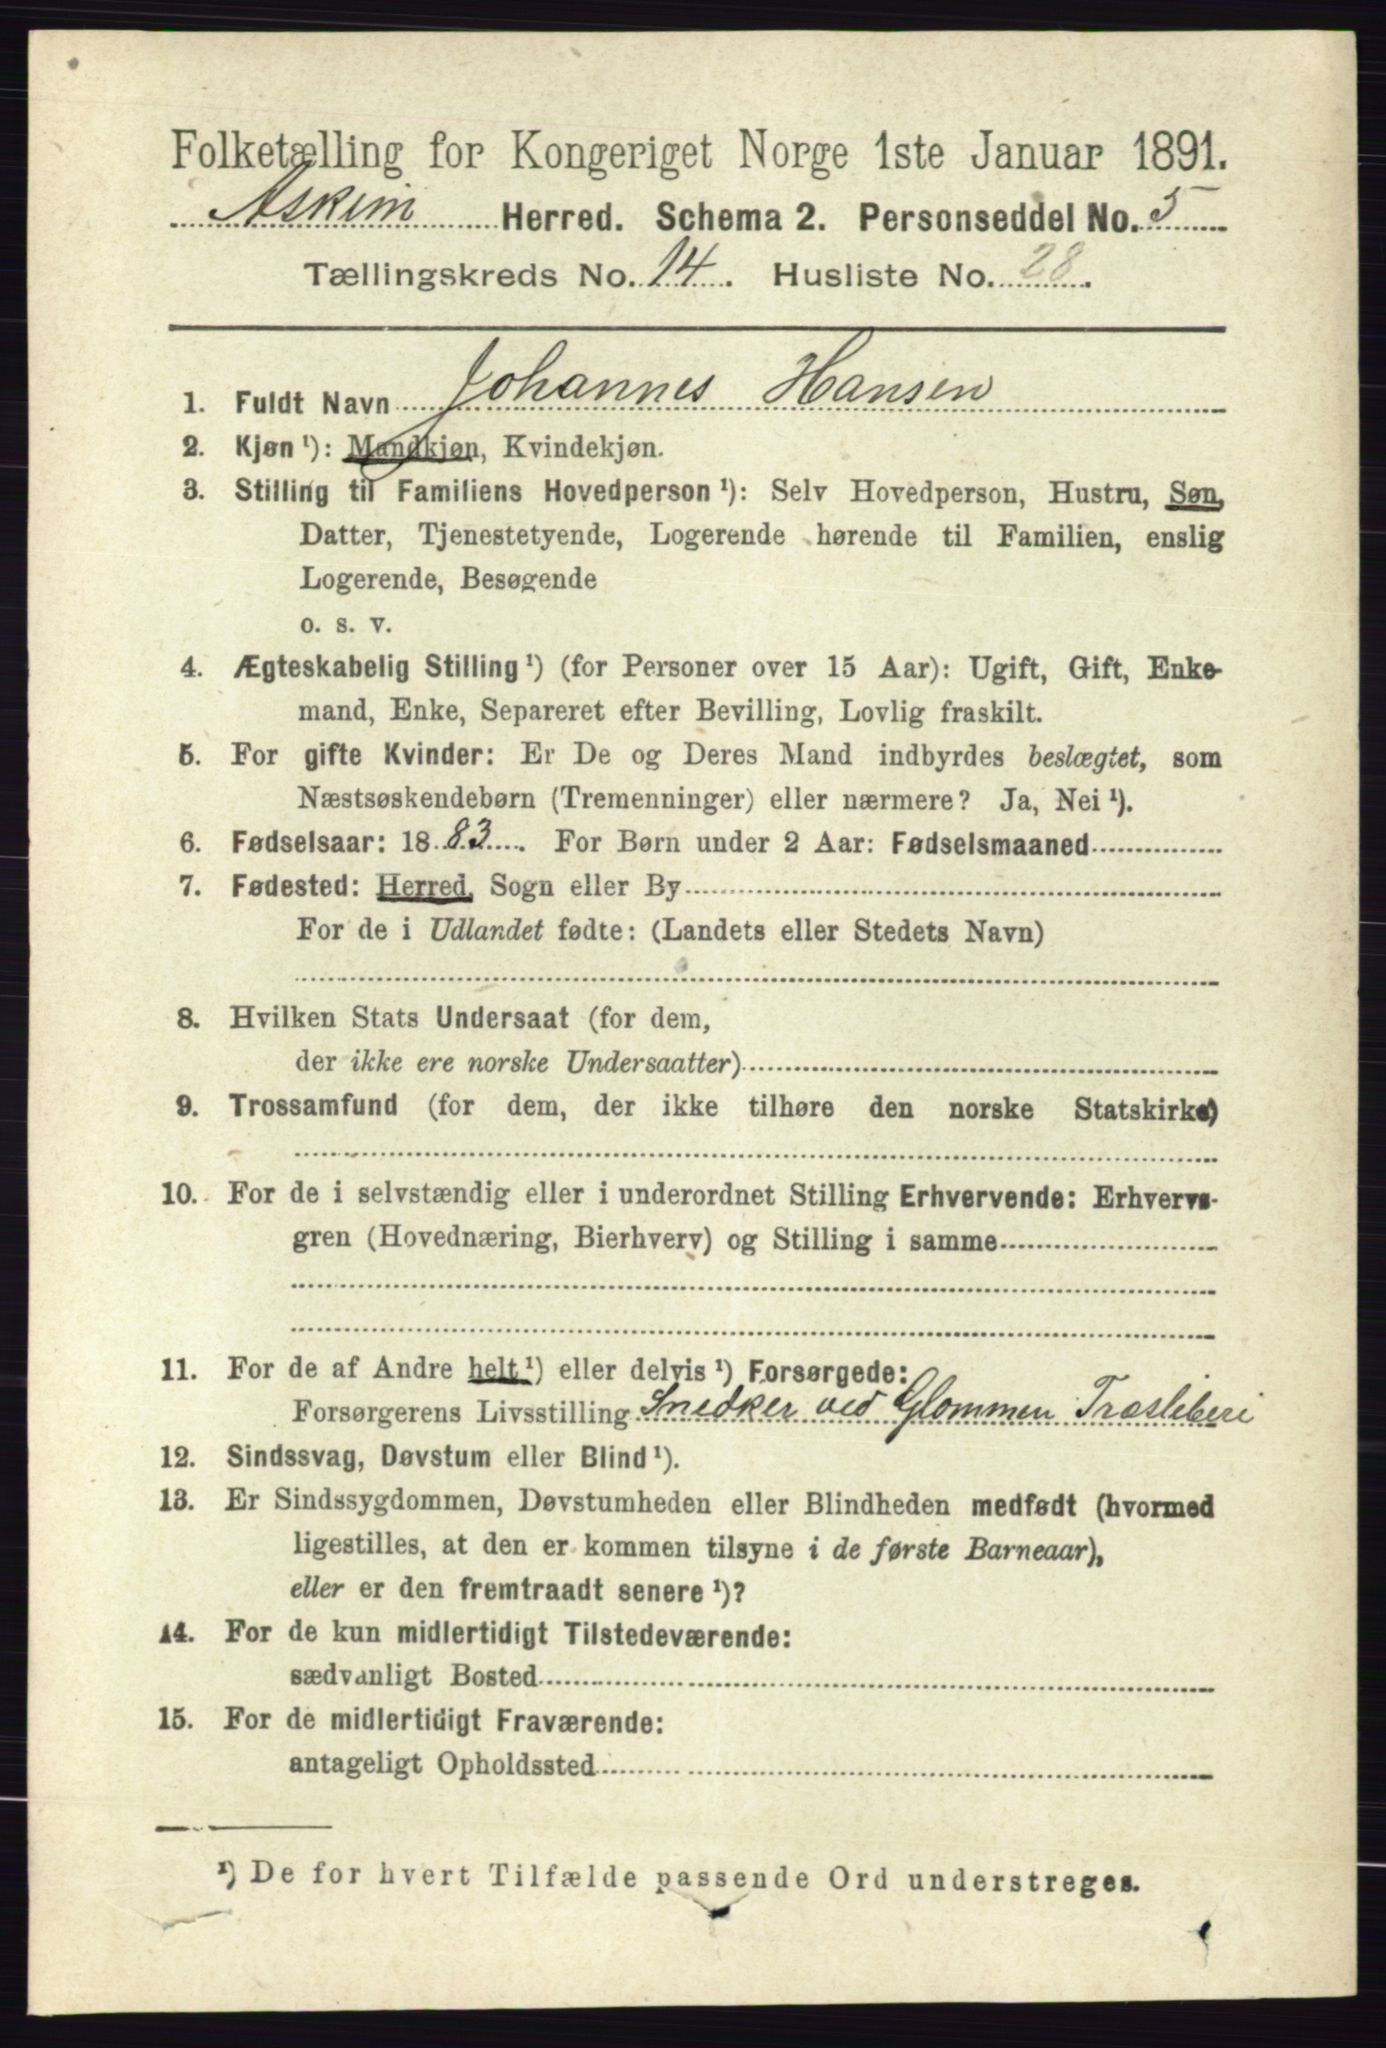 Folketælling for Kongeriget Norge 1ste Januar 1891.
Askim Herred. Schema 2. Personseddel No. 5
Tællingskreds No. 14. Husliste No. 28.
1. Fuldt Navn Johannes Hansen
2. Kjøn ¹): Mandkjøn, Kvindekjøn.
3. Stilling til Familiens Hovedperson ¹): Selv Hovedperson, Hustru, Søn,
Datter, Tjenestetyende, Logerende hørende til Familien, enslig
Logerende, Besøgende
o. s. v.
4. Ægteskabelig Stilling ¹) (for Personer over 15 Aar): Ugift, Gift, Enke-
mand, Enke, Separeret efter Bevilling, Lovlig fraskilt.
5. For gifte Kvinder: Er De og Deres Mand indbyrdes beslægtet, som
Næstsøskendebørn (Tremenninger) eller nærmere? Ja, Nei ¹).
6. Fødselsaar: 1883. For Børn under 2 Aar: Fødselsmaaned
7. Fødested: Herred, Sogn eller By
For de i Udlandet fødte: (Landets eller Stedets Navn)
8. Hvilken Stats Undersaat (for dem,
der ikke ere norske Undersaatter)
9. Trossamfund (for dem, der ikke tilhøre den norske Statskirke)
10. For de i selvstændig eller i underordnet Stilling Erhvervende: Erhvervs-
gren (Hovednæring, Bierhverv) og Stilling i samme
11. For de af Andre helt ¹) eller delvis ¹) Forsørgede:
Forsørgerens Livsstilling Snedker ved Glommen Træsliberi
12. Sindssvag, Døvstum eller Blind ¹).
13. Er Sindssygdommen, Døvstumheden eller Blindheden medfødt (hvormed
ligestilles, at den er kommen tilsyne i de første Barneaar),
eller er den fremtraadt senere ¹)?
14. For de kun midlertidigt Tilstedeværende:
sædvanligt Bosted
15. For de midlertidigt Fraværende:
antageligt Opholdssted
¹) De for hvert Tilfælde passende Ord understreges.